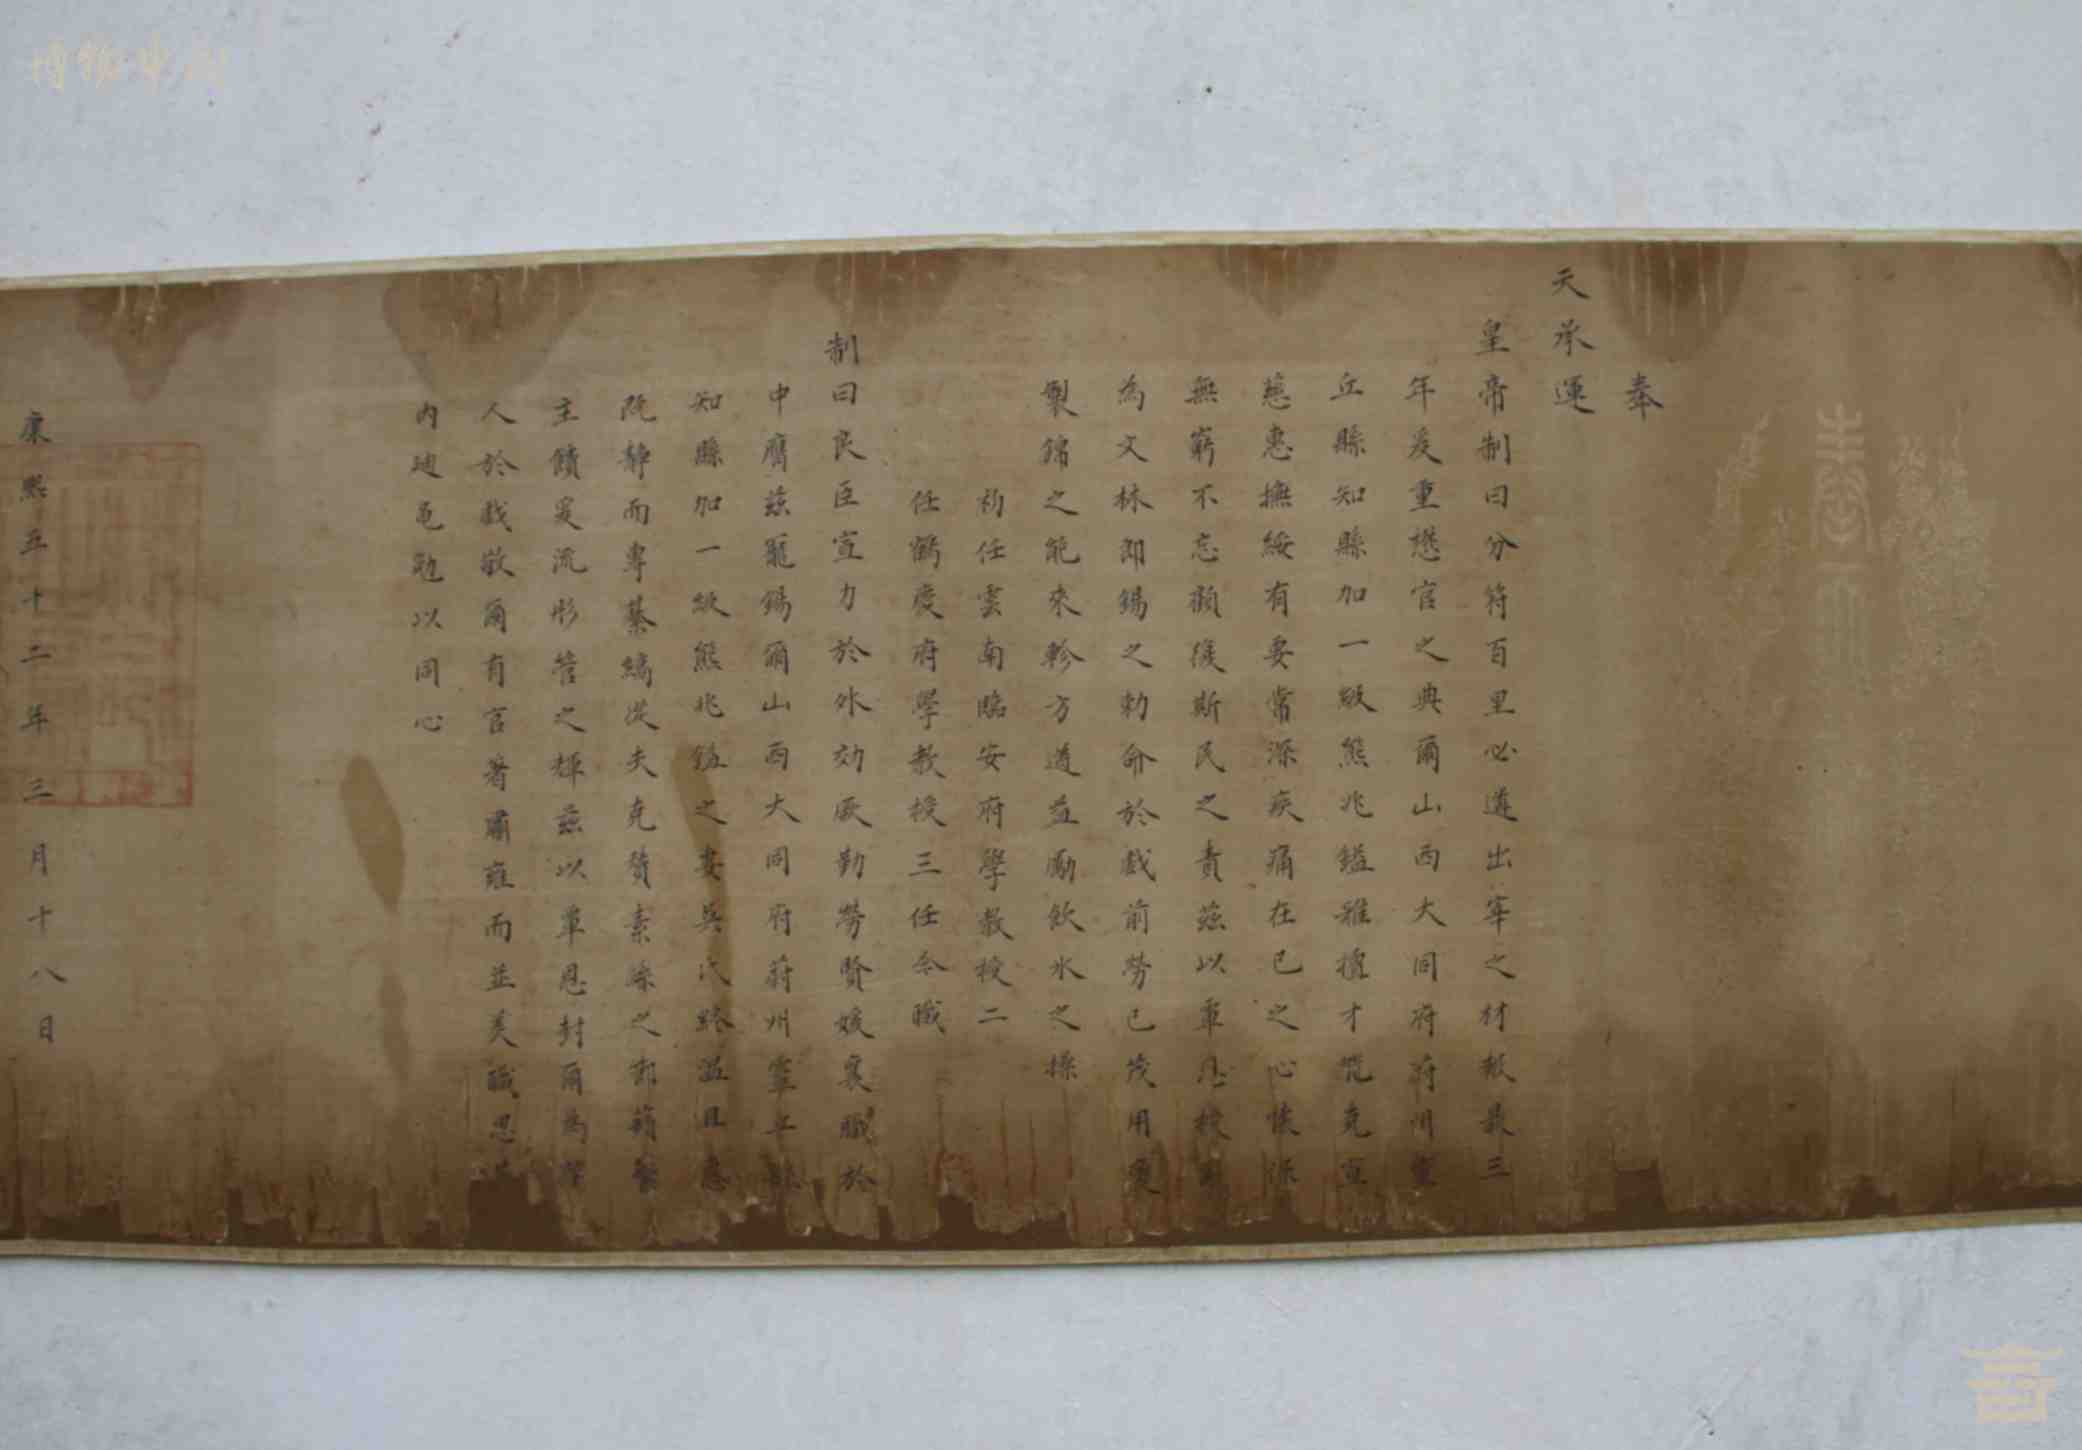 奉
天承運
皇帝制曰分符百里必遴出宰之材報最三
年爰重懋官之典爾山西大同府蔚州靈
丘縣知縣加一級熊兆鎰雅擅才能克宣
慈惠撫綏有要常深疾痛在己之心懷保
無窮不忘顧復斯民之責茲以覃恩授爾
為文林郎錫之勅命於戲前勞已茂用褒
製錦之能來軫方遒益勵飲冰之操
初任雲南臨安府學教授二
任鶴慶府學教授三任今職
制曰良臣宣力於外効厥勤勞賢媛襄職於
中膺茲寵錫爾山西大同府蔚州靈丘縣
知縣加一級熊兆鎰之妻吳氏終溫且惠
既靜而專綦縞從夫克贊素絲之節蘋蘩
主饋爰流彤管之輝茲以覃恩封爾為孺
人於戲敬爾有官著肅雍而並美職思其
內迪黽勉以同心
康熙五十二年三月十八日
博物中國